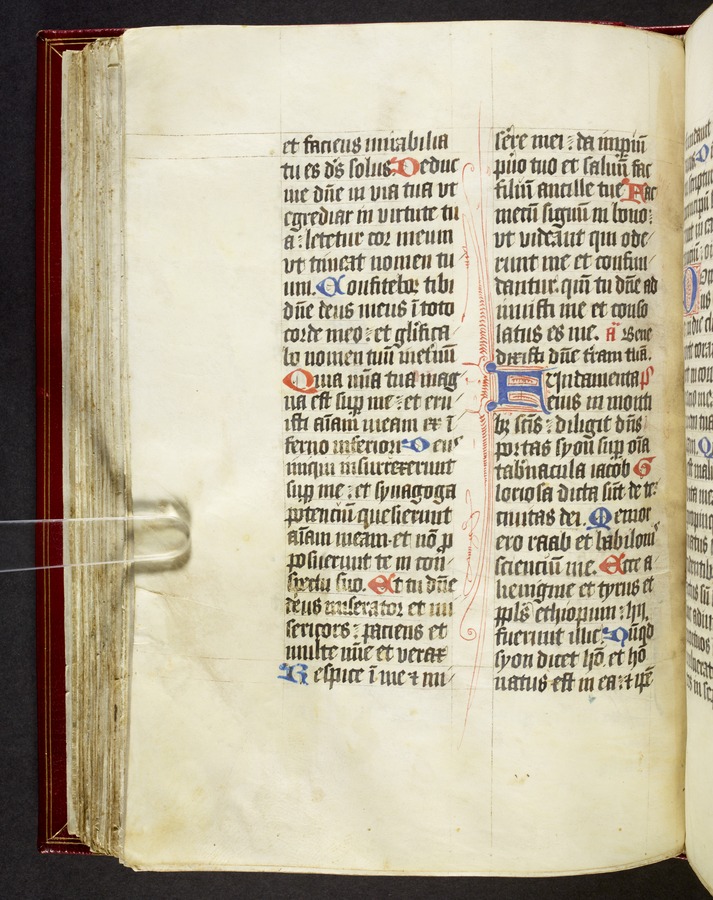 et faciens mirabilia
tu es ds solus Deduc
me dne in via tua et
egrediar in virtute tu
a : letetur cor meum
vt timeat nomen tu
um. Confitebor tibi
dne deus meus ī toto
corde meo : et glīfica
bo nomen tuū ineternū
Quia mīa tua mag
na est sup me : et eru
isti aīam meam ex ī
ferno inferiori Deus
iniqui insurrexerunt
sup me : et synagoga
potenciū quesierunt
aīam meam et nō p
posuerunt te in con
spectu suo. Et tu dne
deus miserator et mi
sericors : paciens et
multe mīe et verax
Respice ī me ⁊ mi
sere mei : da impiū
puo tuo et saluū fac
filiū ancille tue Fac
mecū signū in bono :
vt videāut qui ode
runt me et confun
dantur. qm̄ tu dne ad
iuuisti me et conso
latus es me. a Bene
dixisti dne tram tuā.
Fundamenta
eius in monti
bȝ scīs : diligit dn̄s
portas syon sup oīa
tabnacula iacob G
loriosa dicta sūt de te :
ciuitas dei. Memor
ero raab et babiloni
scienciū me. Ecce a
lienigine et tyrus et
ppls ethiopum : hij
fuerunt illic. Nūqd
syon dicet hō et hō
natus est in ea : ⁊ ipē